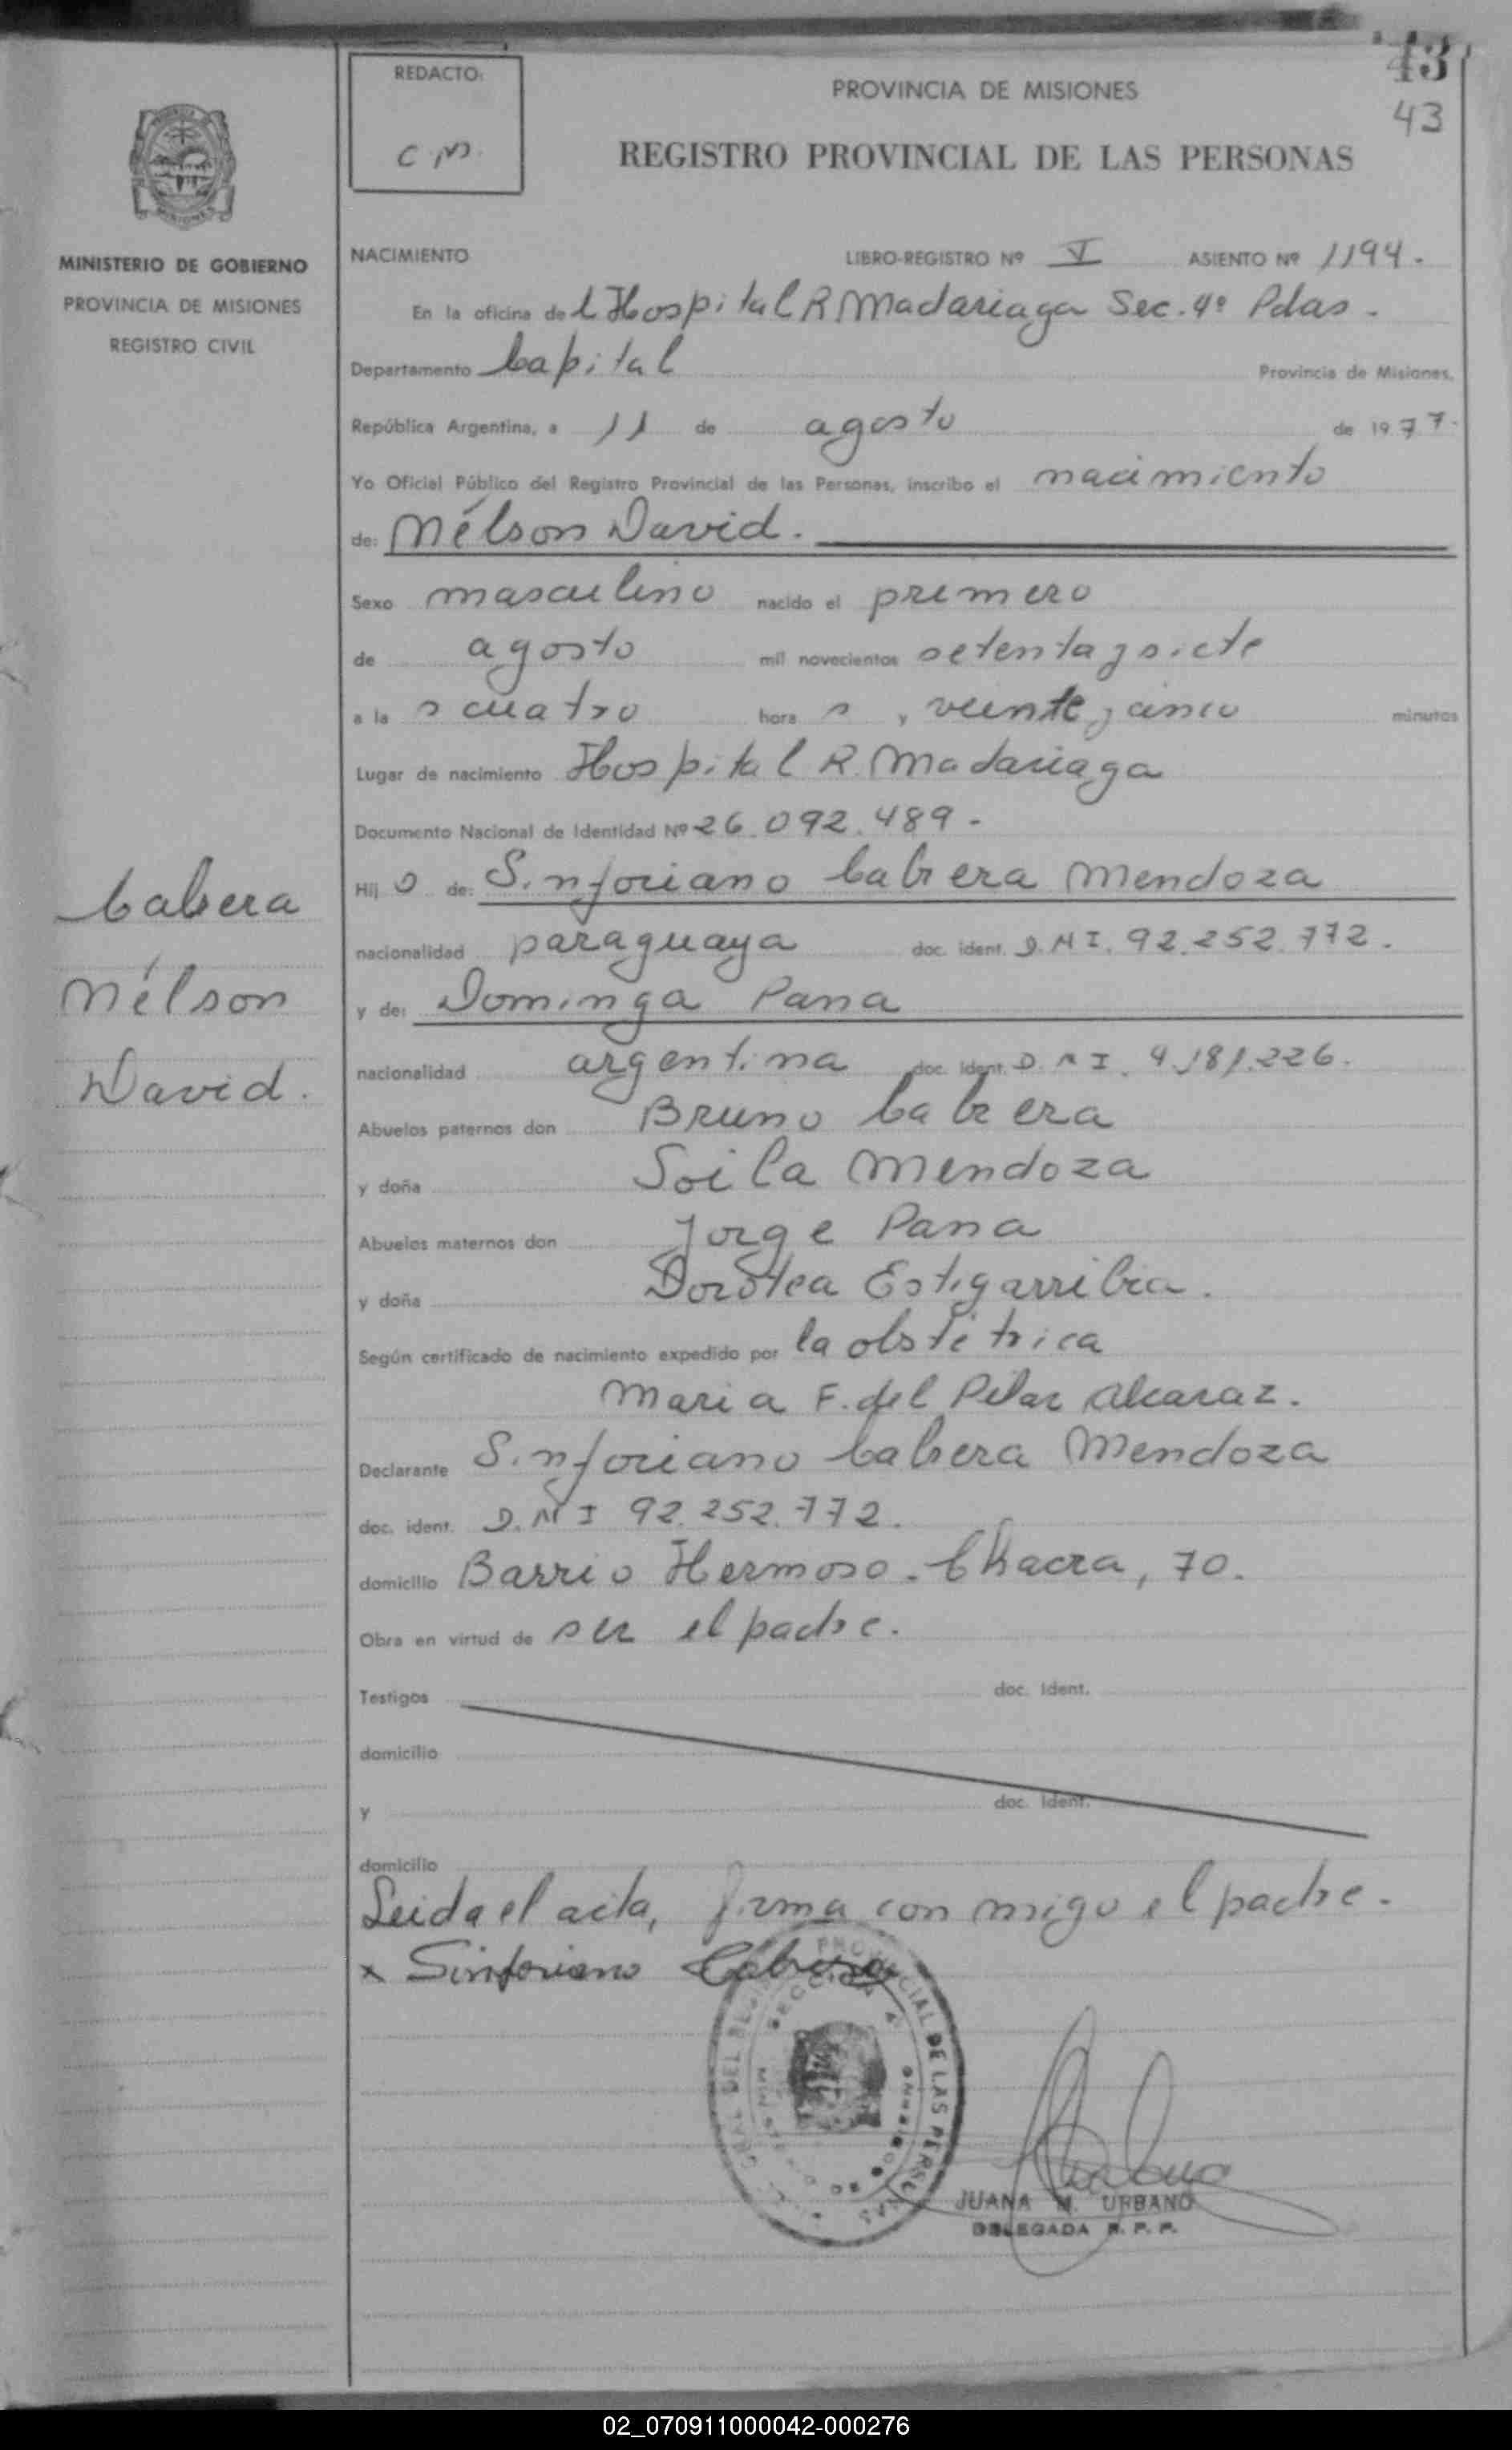 43
43
REDACTO:
C M.
PROVINCIA DE MISIONES
REGISTRO PROVINCIAL DE LAS PERSONAS
MINISTERIO DE GOBIERNO
PROVINCIA DE MISIONES
REGISTRO CIVIL
NACIMIENTO LIBRO-REGISTRO Nº V ASIENTO Nº 1194.
En la oficina del Hospital R Madariaga Sec. 4º Pdas.
Departamento Capital Provincia de Misiones,
República Argentina, a 11 de agosto de 1977.
Yo Oficial Público del Registro Provincial de las Personas, inscribo el nacimiento
de: Nélson David.
Sexo masculino nacido el primero
de agosto mil novecientos setenta y siete
a las cuatro horas, veinte y cinco minutos
Lugar de nacimiento Hospital R. Madariaga
Documento Nacional de Identidad Nº 26.092.489-
Hijo de: Sinforiano Cabrera Mendoza
nacionalidad paraguaya doc. ident. D.N.I. 92.252.772.
y de: Dominga Pana
nacionalidad argentina doc. ident. D.N.I. 4.181.226.
Abuelos paternos don Bruno Cabrera
y doña Soila Mendoza
Abuelos maternos don Jorge Pana
y doña Dorotea Estigarribia.
Según certificado de nacimiento expedido por la obstétrica
Maria F. del Pilar Alcaraz.
Declarante Sinforiano Cabrera Mendoza
doc. ident. D.N.I 92.252.772.
domicilio Barrio Hermoso. Chacra, 70.
Obra en virtud de ser el padre.
Testigos doc. Ident.
domicilio
y doc. Ident.
domicilio
Leida el acta, firma con migo el padre.
x Sinforiano Cabrera
Cabrera
Nélson
David.
PROVINCIAL DE LAS PERSONAS
JUANA M. URBANO
DELEGADA R. P. P.
02_070911000042-000276